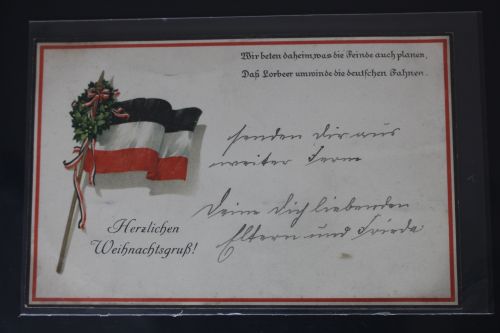 Wir beten daheim, was die Feinde auch planen,
Daß Lorbeer umwinde die deutschen Fahnen.
senden Dir aus
weiter Ferne
Deine Dich liebenden
Eltern und Frieda
Herzlichen
Weihnachtsgruß!